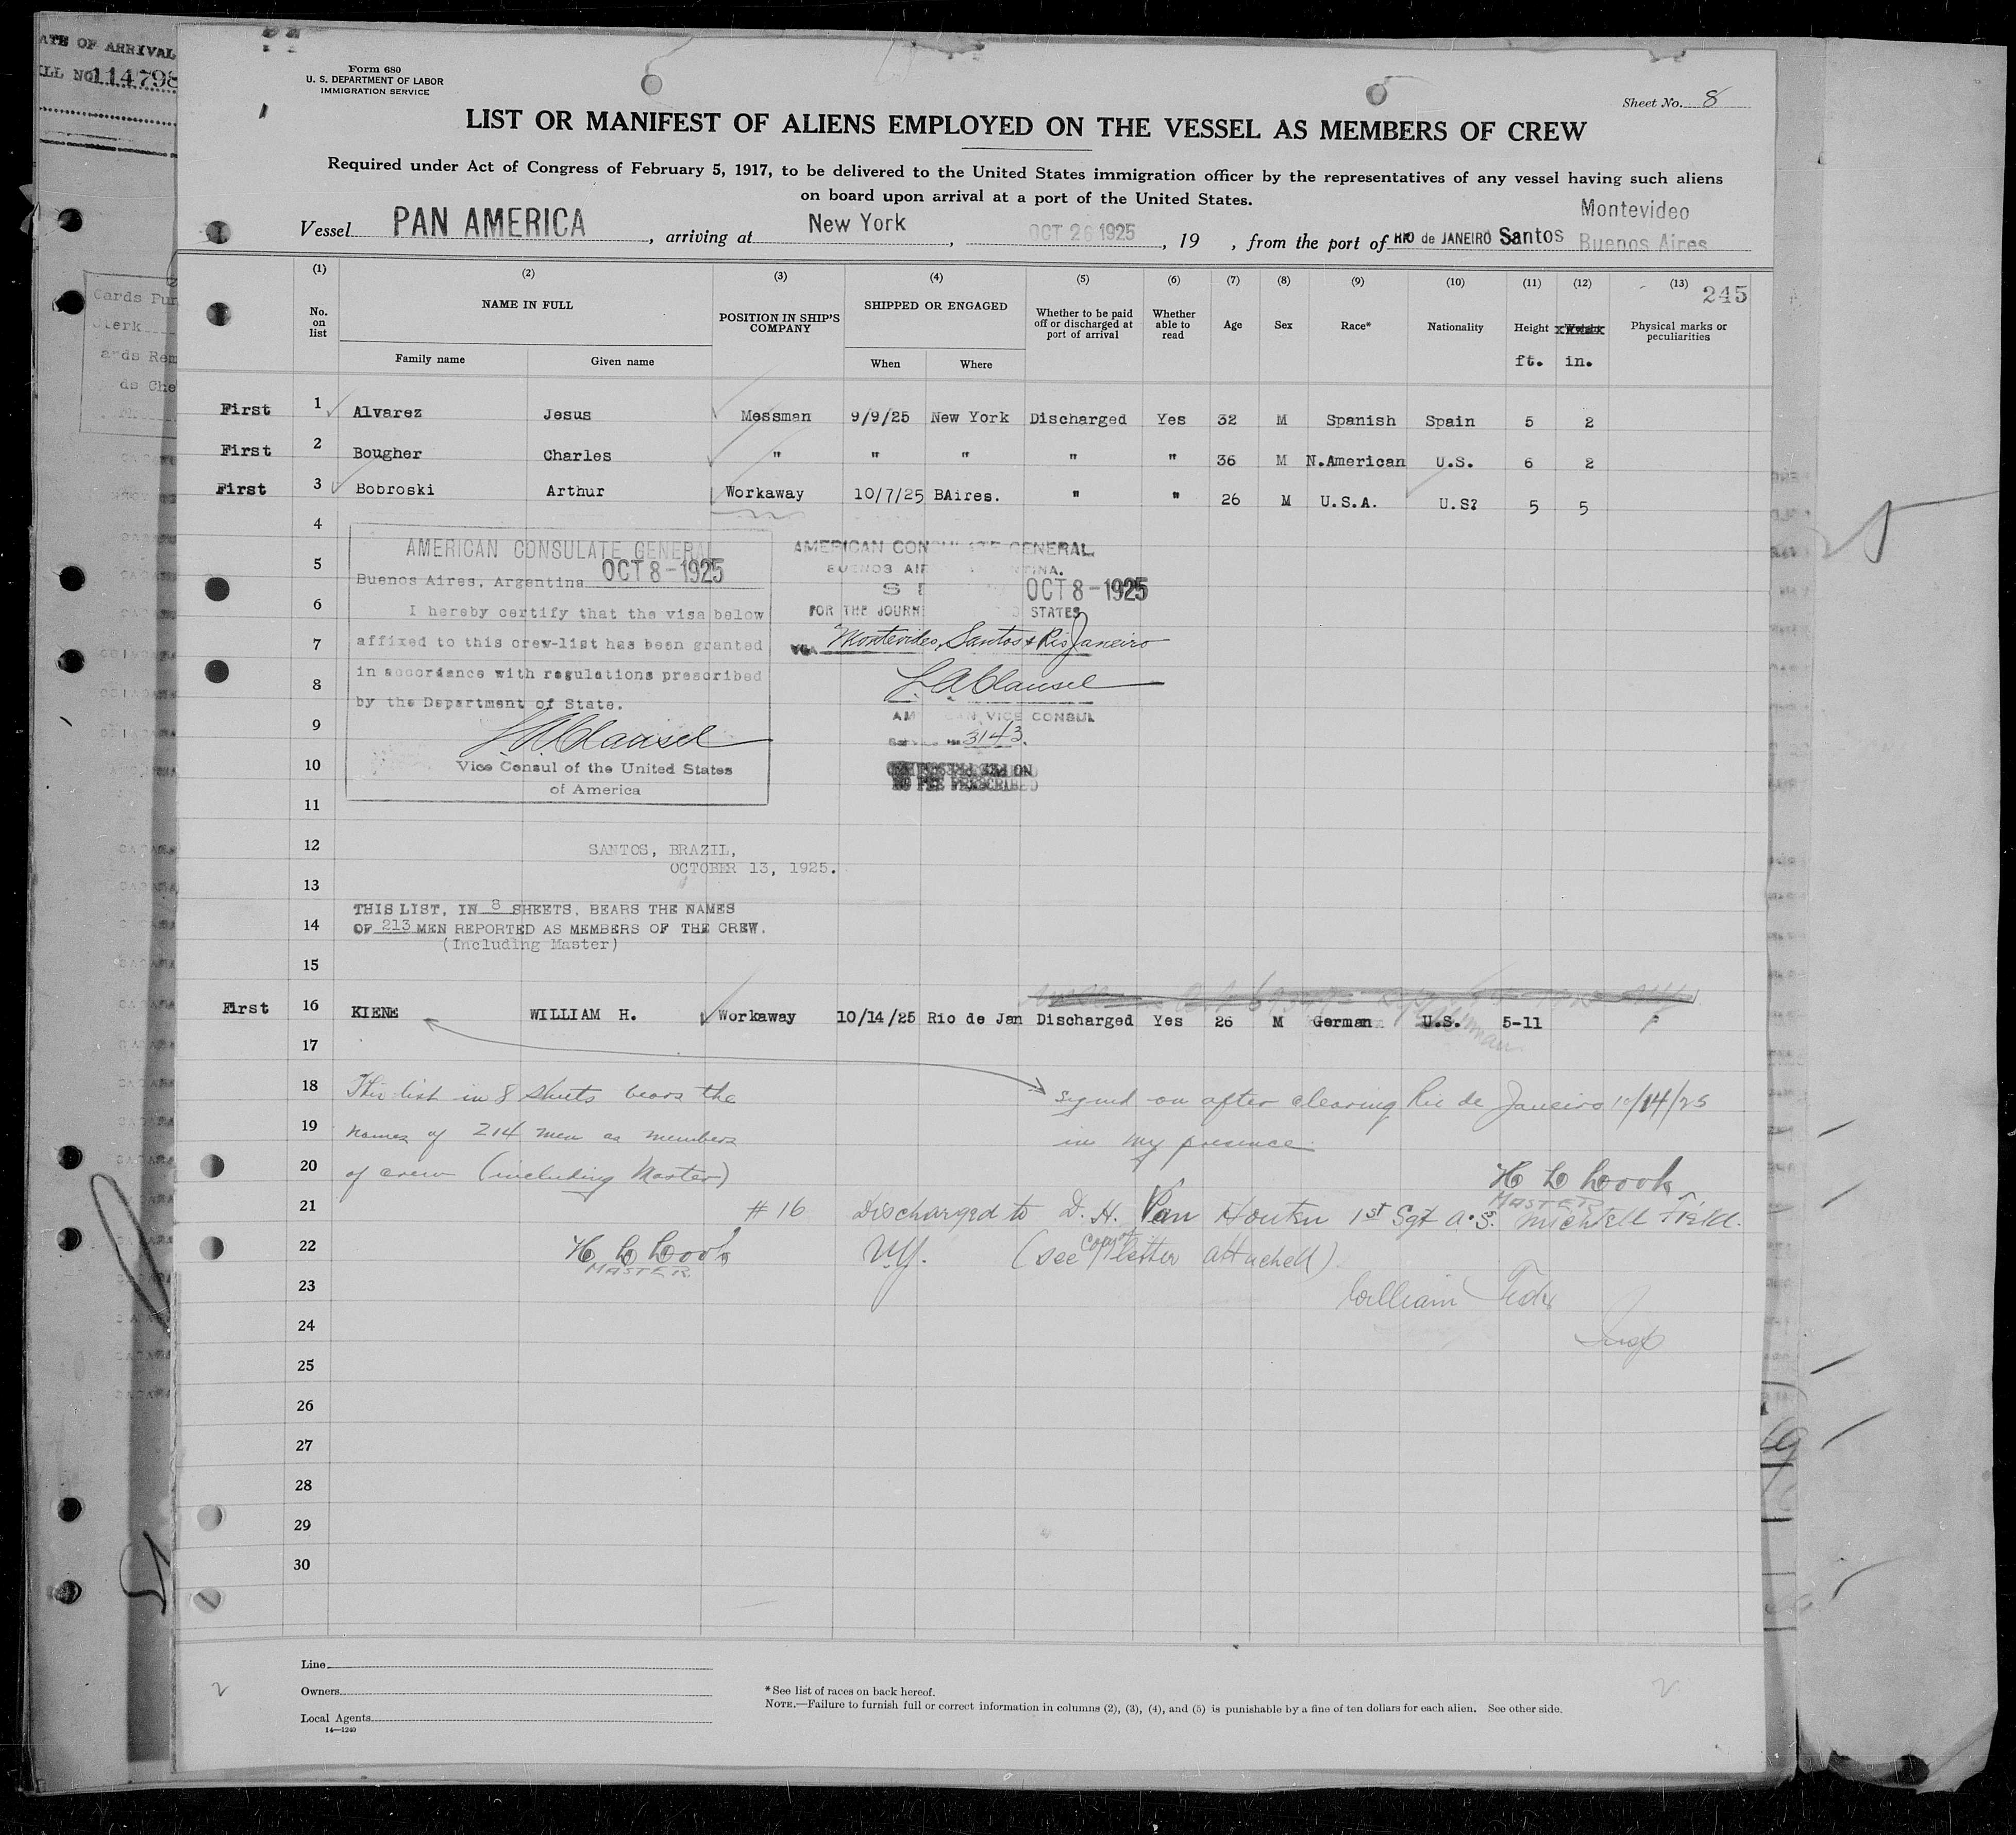 ATE OF ARRIVAL
ILL NO. 114798
Form 680
U. S. DEPARTMENT OF LABOR
IMMIGRATION SERVICE
Sheet No. 8
LIST OR MANIFEST OF ALIENS EMPLOYED ON THE VESSEL AS MEMBERS OF CREW
Required under Act of Congress of February 5, 1917, to be delivered to the United States immigration officer by the representatives of any vessel having such aliens
on board upon arrival at a port of the United States.
Montevideo
Vessel PAN AMERICA, arriving at New York, OCT 26 1925, 19 , from the port of RIO de JANEIRO Santos Buenos Aires
(1) (2) (3) (4) (5) (6) (7) (8) (9) (10) (11) (12) (13) 245
No. on list NAME IN FULL POSITION IN SHIP'S COMPANY SHIPPED OR ENGAGED Whether to be paid off or discharged at port of arrival Whether able to read Age Sex Race* Nationality Height Weight Physical marks or peculiarities
Family name Given name When Where ft. in.
First 1 Alvarez Jesus Messman 9/9/25 New York Discharged Yes 32 M Spanish Spain 5 2
First 2 Bougher Charles " " " " " 36 M N.American U.S. 6 2
First 3 Bobroski Arthur Workaway 10/7/25 BAires. " " 26 M U.S.A. U.S? 5 5
4
5
6
7
8
9
10
11
AMERICAN CONSULATE GENERAL
Buenos Aires, Argentina OCT 8-1925
I hereby certify that the visa below
affixed to this crew-list has been granted
in accordance with regulations prescribed
by the Department of State.
Vice Consul of the United States
of America
AMERICAN CONSULATE GENERAL.
OCT 8-1925
FOR THE JOURN STATES
VIA Montevideo, Santos & Rio Janeiro
VICE CONSUL
3143.
NO FEE PRESCRIBED
NO FEE PRESCRIBED
12 SANTOS, BRAZIL,
OCTOBER 13, 1925.
13
THIS LIST, IN 8 SHEETS, BEARS THE NAMES
14 OF 213 MEN REPORTED AS MEMBERS OF THE CREW.
(Including Master)
15
First 16 KIENE WILLIAM H. Workaway 10/14/25 Rio de Jan Discharged Yes 26 M German U.S. 5-11
17
18 This list in 8 sheets bears the
19 names of 214 men as members
20 of crew (including Master)
signed on after clearing Rio de Janeiro 10/14/25
in my presence.
H L Cook
MASTER
21 #16 Discharged to D. H. Van Houten 1st Sgt A.S. Michtell Field.
22 H L Cook
MASTER
N.Y. (see copy of letter attached)
23 William
24 Insp
25
26
27
28
29
30
Line
Owners
Local Agents
14—1240
*See list of races on back hereof.
NOTE.—Failure to furnish full or correct information in columns (2), (3), (4), and (5) is punishable by a fine of ten dollars for each alien. See other side.